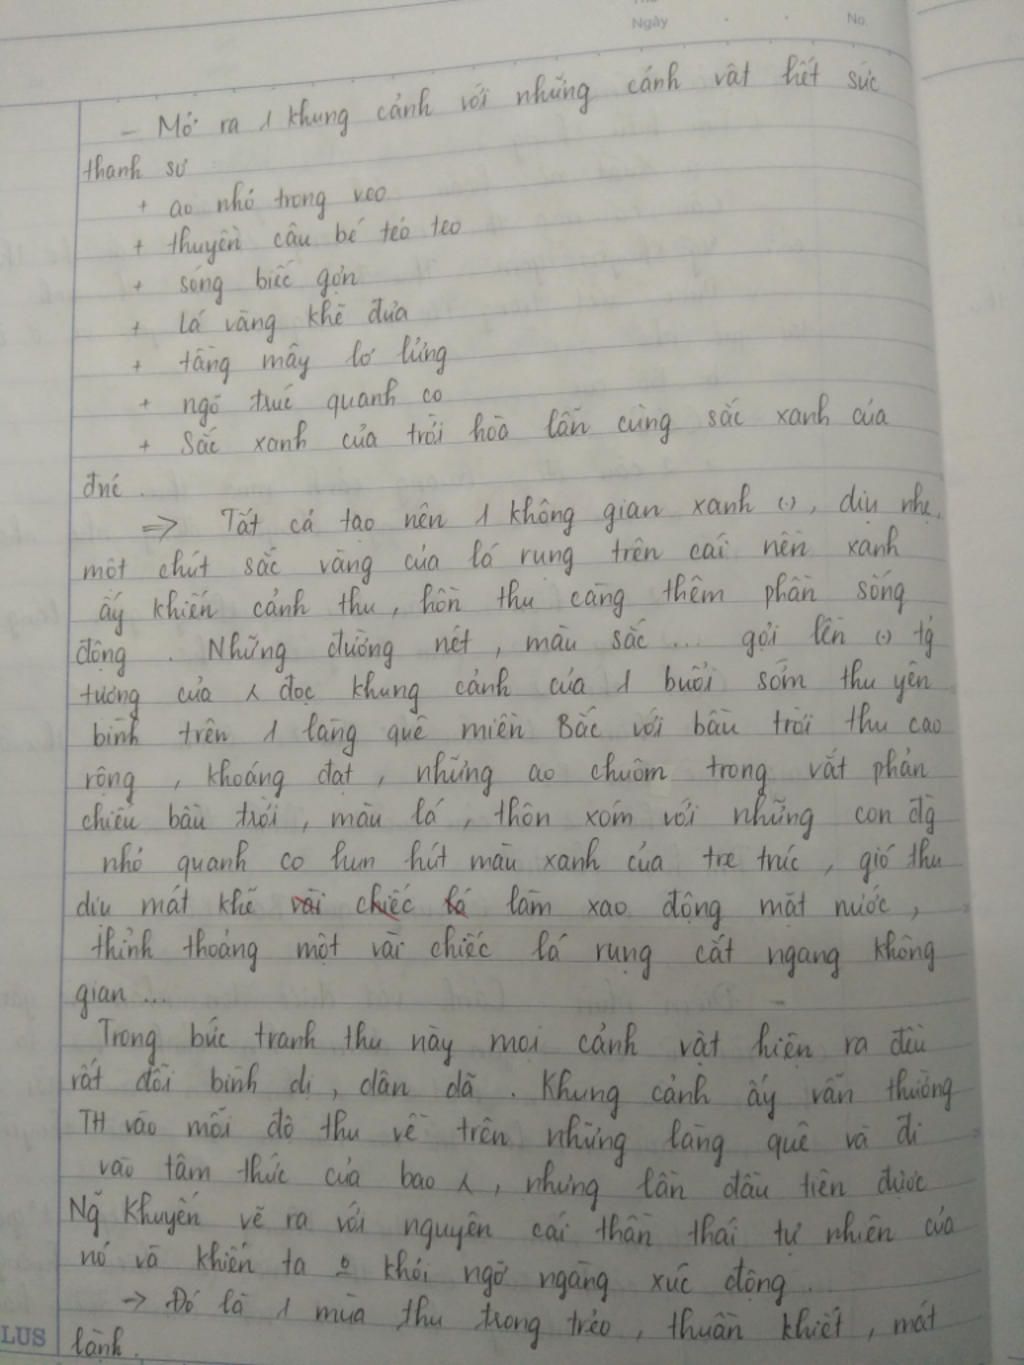 Ngày No.
- Mở ra 1 khung cảnh với những cảnh vật hết sức
thanh sơ
+ ao nhỏ trong veo
+ thuyền câu bé tẻo teo
+ sóng biếc gợn
+ lá vàng khẽ đưa
+ tầng mây lơ lửng
+ ngõ trúc quanh co
+ Sắc xanh của trời hòa lẫn cùng sắc xanh của
trúc.
=> Tất cả tạo nên 1 không gian xanh (.), dịu nhẹ,
một chút sắc vàng của lá rụng trên cái nền xanh
ấy khiến cảnh thu, hồn thu càng thêm phần sống
động. Những đường nét, màu sắc ... gợi lên (.) tg̀
tượng của λ đọc khung cảnh của 1 buổi sớm thu yên
bình trên 1 làng quê miền Bắc với bầu trời thu cao
rộng, khoáng đạt, những ao chuôm trong vắt phản
chiếu bầu trời, màu lá, thôn xóm với những con đg̀
nhỏ quanh co hun hút màu xanh của tre trúc, gió thu
dịu mát khẽ vài chiếc lá làm xao động mặt nước,
thỉnh thoảng một vài chiếc lá rụng cắt ngang không
gian ...
Trong bức tranh thu này mọi cảnh vật hiện ra đều
rất đỗi bình dị, dân dã. Khung cảnh ấy vẫn thường
TH vào mỗi độ thu về trên những làng quê và đi
vào tâm thức của bao λ, nhưng lần đầu tiên được
Ng̃ Khuyến vẽ ra với nguyên cái thần thái tự nhiên của
nó và khiến ta o khỏi ngỡ ngàng xúc động.
-> Đó là 1 mùa thu trong trẻo, thuần khiết, mát
lành.
LUS